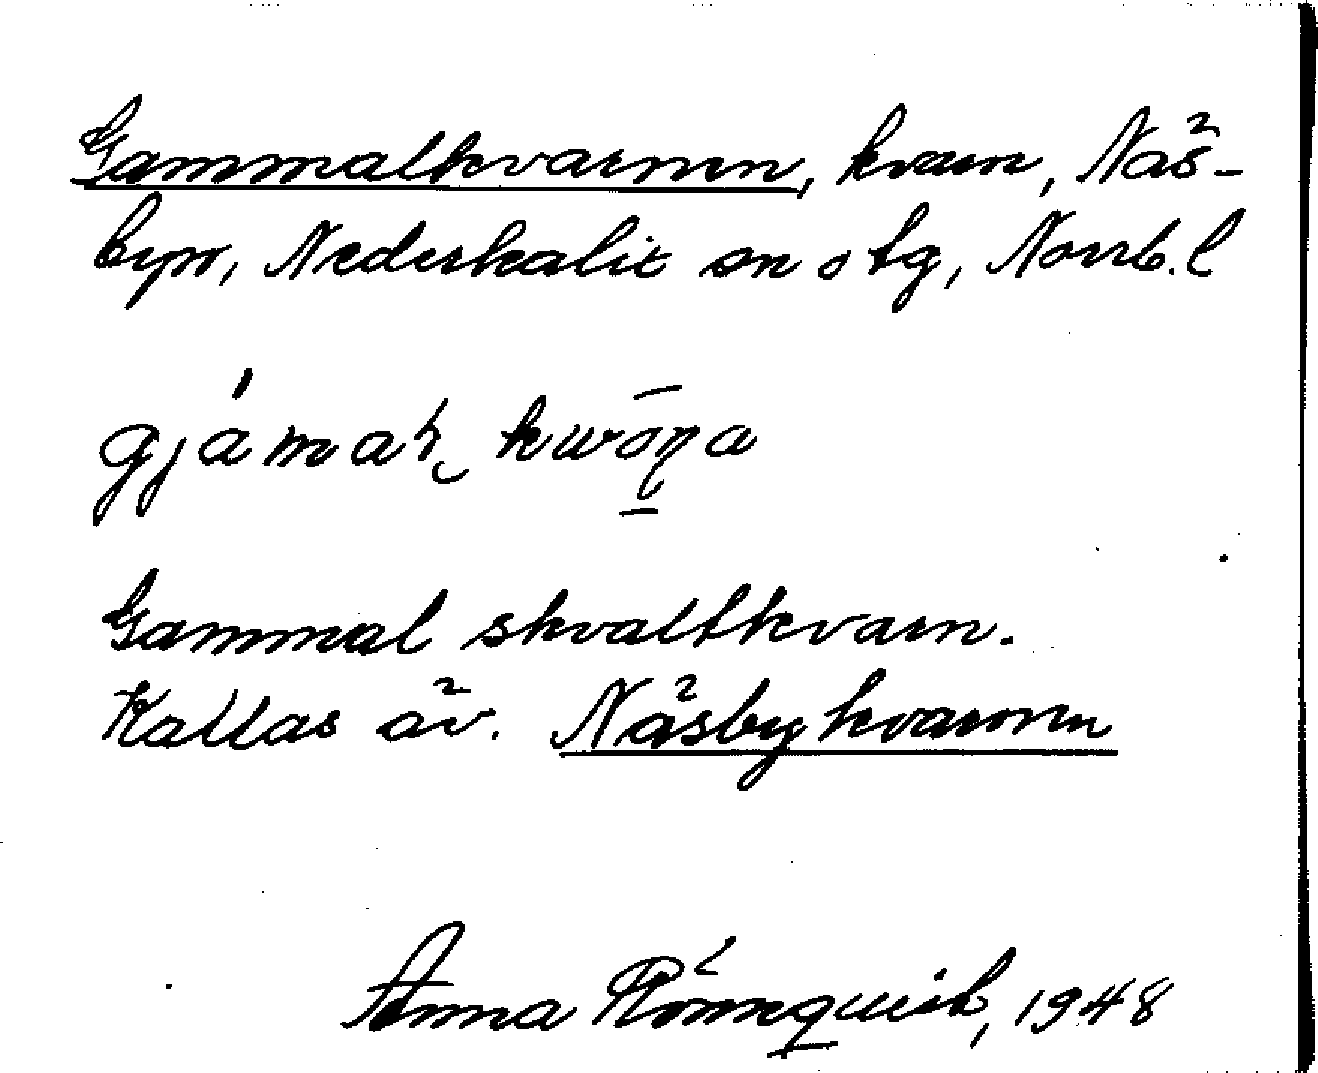 Gammalkvarnen, kvarn, Näs-
byn, Nederkalix sn o tg, Norrb. l
gjámaḷ kwōṇa
Gammal skvaltkvarn.
Kallas äv. Näsbykvarnen
Anna Rönnquist, 1948